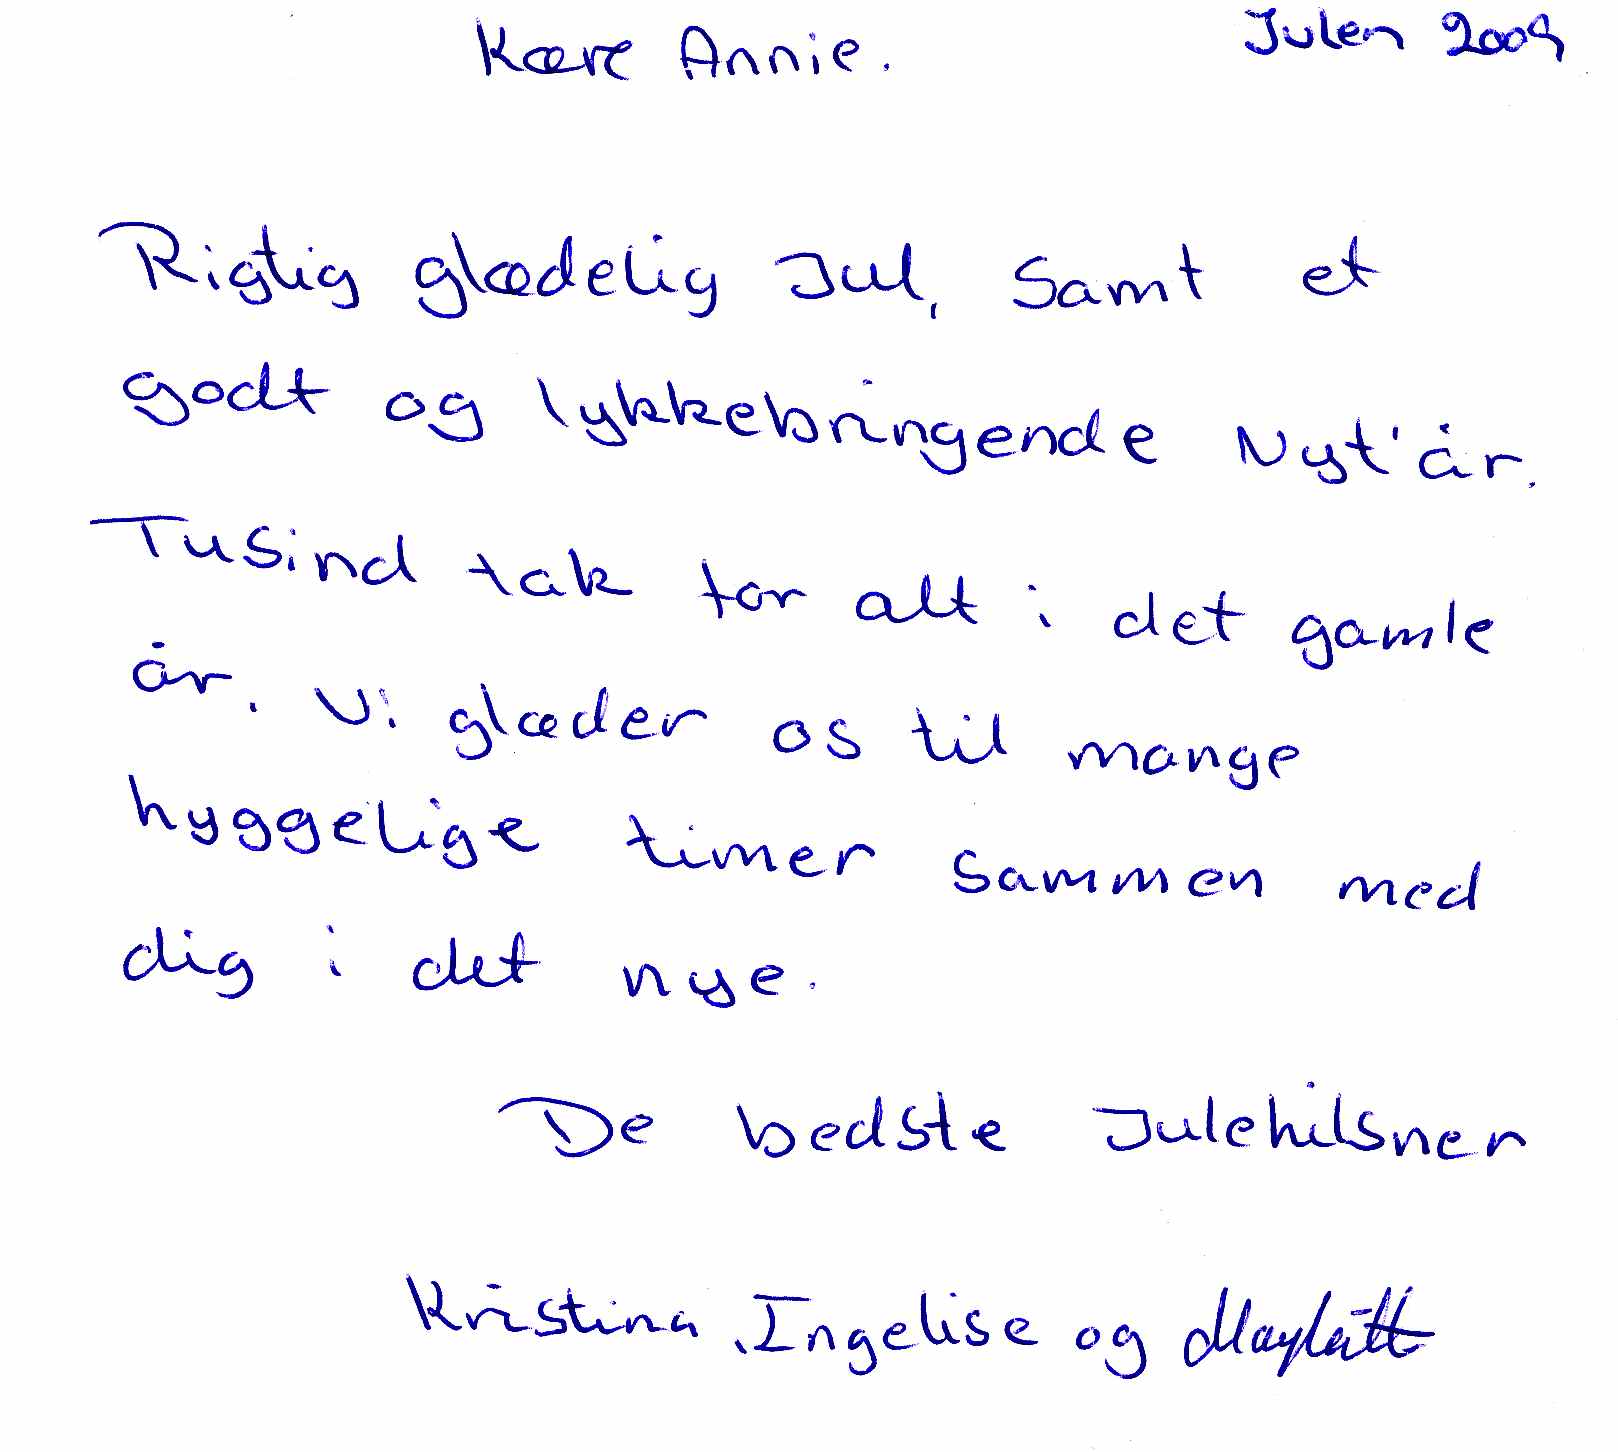 Kære Annie. Julen 2009
Rigtig glædelig Jul, Samt et
godt og lykkebringende Nyt'år.
Tusind tak for alt i det gamle
år. Vi glæder os til mange
hyggelige timer sammen med
dig i det nye.
De bedste Julehilsner
Kristina, Ingelise og